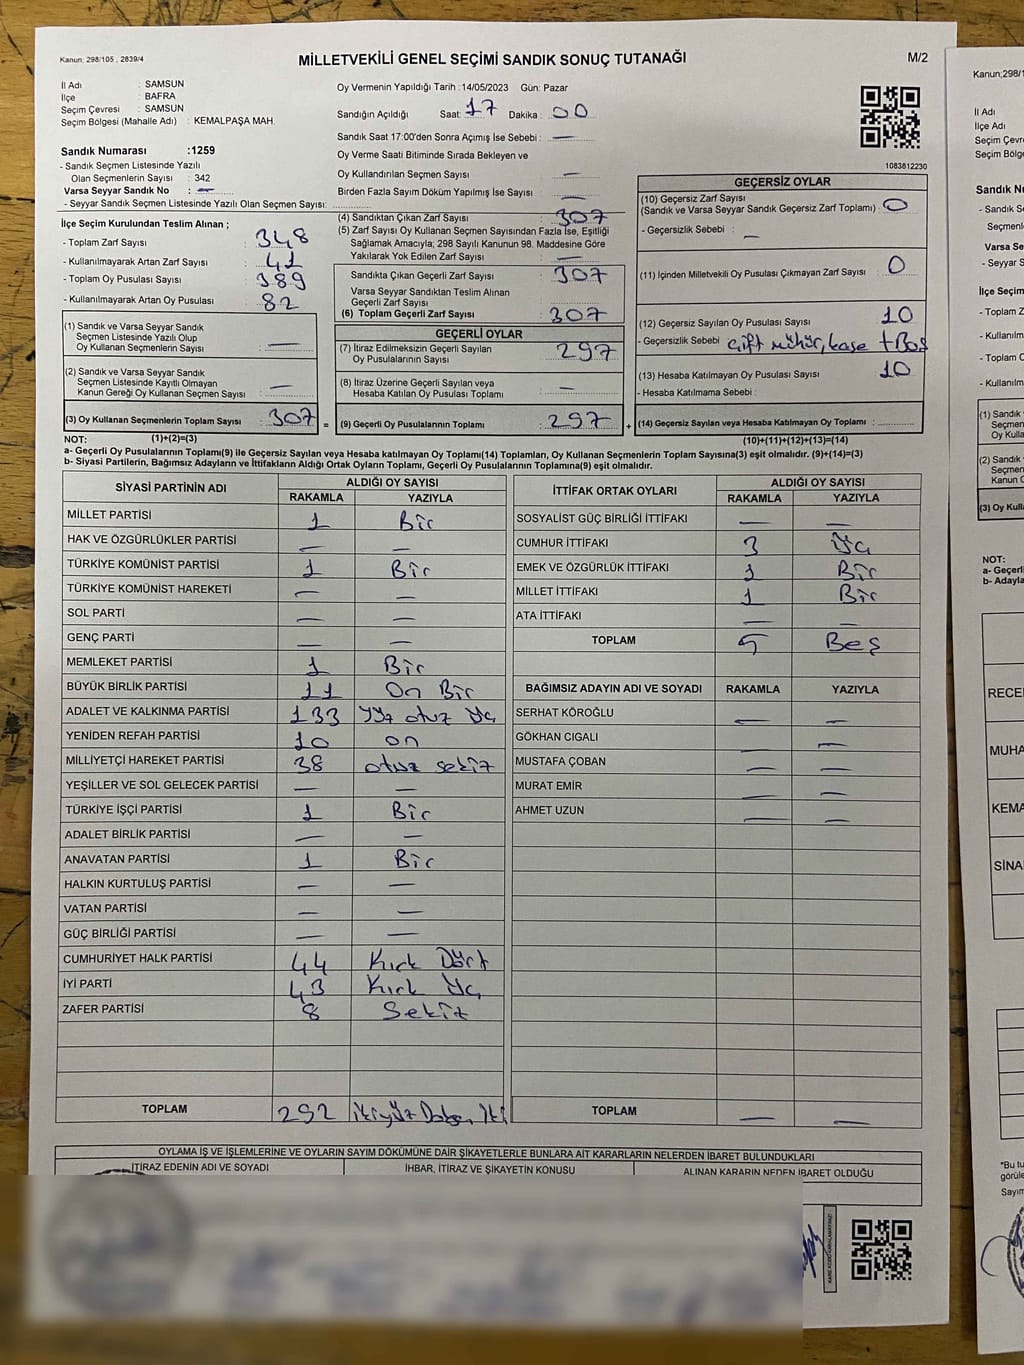 Kanun: 298/105 , 2839/4
MİLLETVEKİLİ GENEL SEÇİMİ SANDIK SONUÇ TUTANAĞI
M/2
İl Adı : SAMSUN
İlçe : BAFRA
Seçim Çevresi : SAMSUN
Seçim Bölgesi (Mahalle Adı) : KEMALPAŞA MAH.
Sandık Numarası :1259
- Sandık Seçmen Listesinde Yazılı
Olan Seçmenlerin Sayısı : 342
Varsa Seyyar Sandık No : —
- Seyyar Sandık Seçmen Listesinde Yazılı Olan Seçmen Sayısı:
Oy Vermenin Yapıldığı Tarih :14/05/2023 Gün: Pazar
Sandığın Açıldığı Saat: 17 Dakika : 00
Sandık Saat 17:00'den Sonra Açımış İse Sebebi : —
Oy Verme Saati Bitiminde Sırada Bekleyen ve
Oy Kullandırılan Seçmen Sayısı : —
Birden Fazla Sayım Döküm Yapılmış İse Sayısı : —
1083812230
İlçe Seçim Kurulundan Teslim Alınan ;
- Toplam Zarf Sayısı : 348
- Kullanılmayarak Artan Zarf Sayısı : 41
- Toplam Oy Pusulası Sayısı : 389
- Kullanılmayarak Artan Oy Pusulası : 82
(1) Sandık ve Varsa Seyyar Sandık
Seçmen Listesinde Yazılı Olup
Oy Kullanan Seçmenlerin Sayısı : —
(2) Sandık ve Varsa Seyyar Sandık
Seçmen Listesinde Kayıtlı Olmayan
Kanun Gereği Oy Kullanan Seçmen Sayısı : —
(3) Oy Kullanan Seçmenlerin Toplam Sayısı : 307
(4) Sandıktan Çıkan Zarf Sayısı : 307
(5) Zarf Sayısı Oy Kullanan Seçmen Sayısından Fazla İse, Eşitliği
Sağlamak Amacıyla; 298 Sayılı Kanunun 98. Maddesine Göre
Yakılarak Yok Edilen Zarf Sayısı : —
Sandıkta Çıkan Geçerli Zarf Sayısı : 307
Varsa Seyyar Sandıktan Teslim Alınan
Geçerli Zarf Sayısı :
(6) Toplam Geçerli Zarf Sayısı : 307
GEÇERLİ OYLAR
(7) İtiraz Edilmeksizin Geçerli Sayılan
Oy Pusulalarının Sayısı : 297
(8) İtiraz Üzerine Geçerli Sayılan veya
Hesaba Katılan Oy Pusulası Toplamı : —
= (9) Geçerli Oy Pusulalarının Toplamı : 297
GEÇERSİZ OYLAR
(10) Geçersiz Zarf Sayısı
(Sandık ve Varsa Seyyar Sandık Geçersiz Zarf Toplamı) : 0
- Geçersizlik Sebebi : —
(11) İçinden Milletvekili Oy Pusulası Çıkmayan Zarf Sayısı : 0
(12) Geçersiz Sayılan Oy Pusulası Sayısı : 10
- Geçersizlik Sebebi : çift mühür, kaşe + Boş
(13) Hesaba Katılmayan Oy Pusulası Sayısı : 10
- Hesaba Katılmama Sebebi :
+ (14) Geçersiz Sayılan veya Hesaba Katılmayan Oy Toplamı :
NOT: (1)+(2)=(3) (10)+(11)+(12)+(13)=(14)
a- Geçerli Oy Pusulalarının Toplamı(9) ile Geçersiz Sayılan veya Hesaba katılmayan Oy Toplamı(14) Toplamları, Oy Kullanan Seçmenlerin Toplam Sayısına(3) eşit olmalıdır. (9)+(14)=(3)
b- Siyasi Partilerin, Bağımsız Adayların ve İttifakların Aldığı Ortak Oyların Toplamı, Geçerli Oy Pusulalarının Toplamına(9) eşit olmalıdır.
SİYASİ PARTİNİN ADI ALDIĞI OY SAYISI
RAKAMLA YAZIYLA
MİLLET PARTİSİ 1 Bir
HAK VE ÖZGÜRLÜKLER PARTİSİ — —
TÜRKİYE KOMÜNİST PARTİSİ 1 Bir
TÜRKİYE KOMÜNİST HAREKETİ — —
SOL PARTİ — —
GENÇ PARTİ — —
MEMLEKET PARTİSİ 1 Bir
BÜYÜK BİRLİK PARTİSİ 11 On Bir
ADALET VE KALKINMA PARTİSİ 133 Yüz otuz Üç
YENİDEN REFAH PARTİSİ 10 on
MİLLİYETÇİ HAREKET PARTİSİ 38 otuz sekiz
YEŞİLLER VE SOL GELECEK PARTİSİ — —
TÜRKİYE İŞÇİ PARTİSİ 1 Bir
ADALET BİRLİK PARTİSİ — —
ANAVATAN PARTİSİ 1 Bir
HALKIN KURTULUŞ PARTİSİ — —
VATAN PARTİSİ — —
GÜÇ BİRLİĞİ PARTİSİ — —
CUMHURİYET HALK PARTİSİ 44 Kırk Dört
İYİ PARTİ 43 Kırk Üç
ZAFER PARTİSİ 8 Sekiz
TOPLAM 292 İkiyüz Doksan İki
İTTİFAK ORTAK OYLARI ALDIĞI OY SAYISI
RAKAMLA YAZIYLA
SOSYALİST GÜÇ BİRLİĞİ İTTİFAKI — —
CUMHUR İTTİFAKI 3 Üç
EMEK VE ÖZGÜRLÜK İTTİFAKI 1 Bir
MİLLET İTTİFAKI 1 Bir
ATA İTTİFAKI — —
TOPLAM 5 Beş
BAĞIMSIZ ADAYIN ADI VE SOYADI RAKAMLA YAZIYLA
SERHAT KÖROĞLU — —
GÖKHAN CIGALI — —
MUSTAFA ÇOBAN — —
MURAT EMİR — —
AHMET UZUN — —
TOPLAM — —
OYLAMA İŞ VE İŞLEMLERİNE VE OYLARIN SAYIM DÖKÜMÜNE DAİR ŞİKAYETLERLE BUNLARA AİT KARARLARIN NELERDEN İBARET BULUNDUKLARI
İTİRAZ EDENİN ADI VE SOYADI İHBAR, İTİRAZ VE ŞİKAYETİN KONUSU ALINAN KARARIN NEDEN İBARET OLDUĞU
Kanun,298/1
İl Adı
İlçe Adı
Seçim Çevre
Seçim Bölge
Sandık Nu
- Sandık Se
Seçmenle
Varsa Se
- Seyyar S
İlçe Seçim
- Toplam Z
- Kullanılm
- Toplam O
- Kullanılm
(1) Sandık
Seçmen
Oy Kulla
(2) Sandık
Seçmen
Kanun G
(3) Oy Kull
NOT:
a- Geçerl
b- Adayla
RECE
MUHA
KEMA
SİNA
*Bu tu
görüle
Sayım